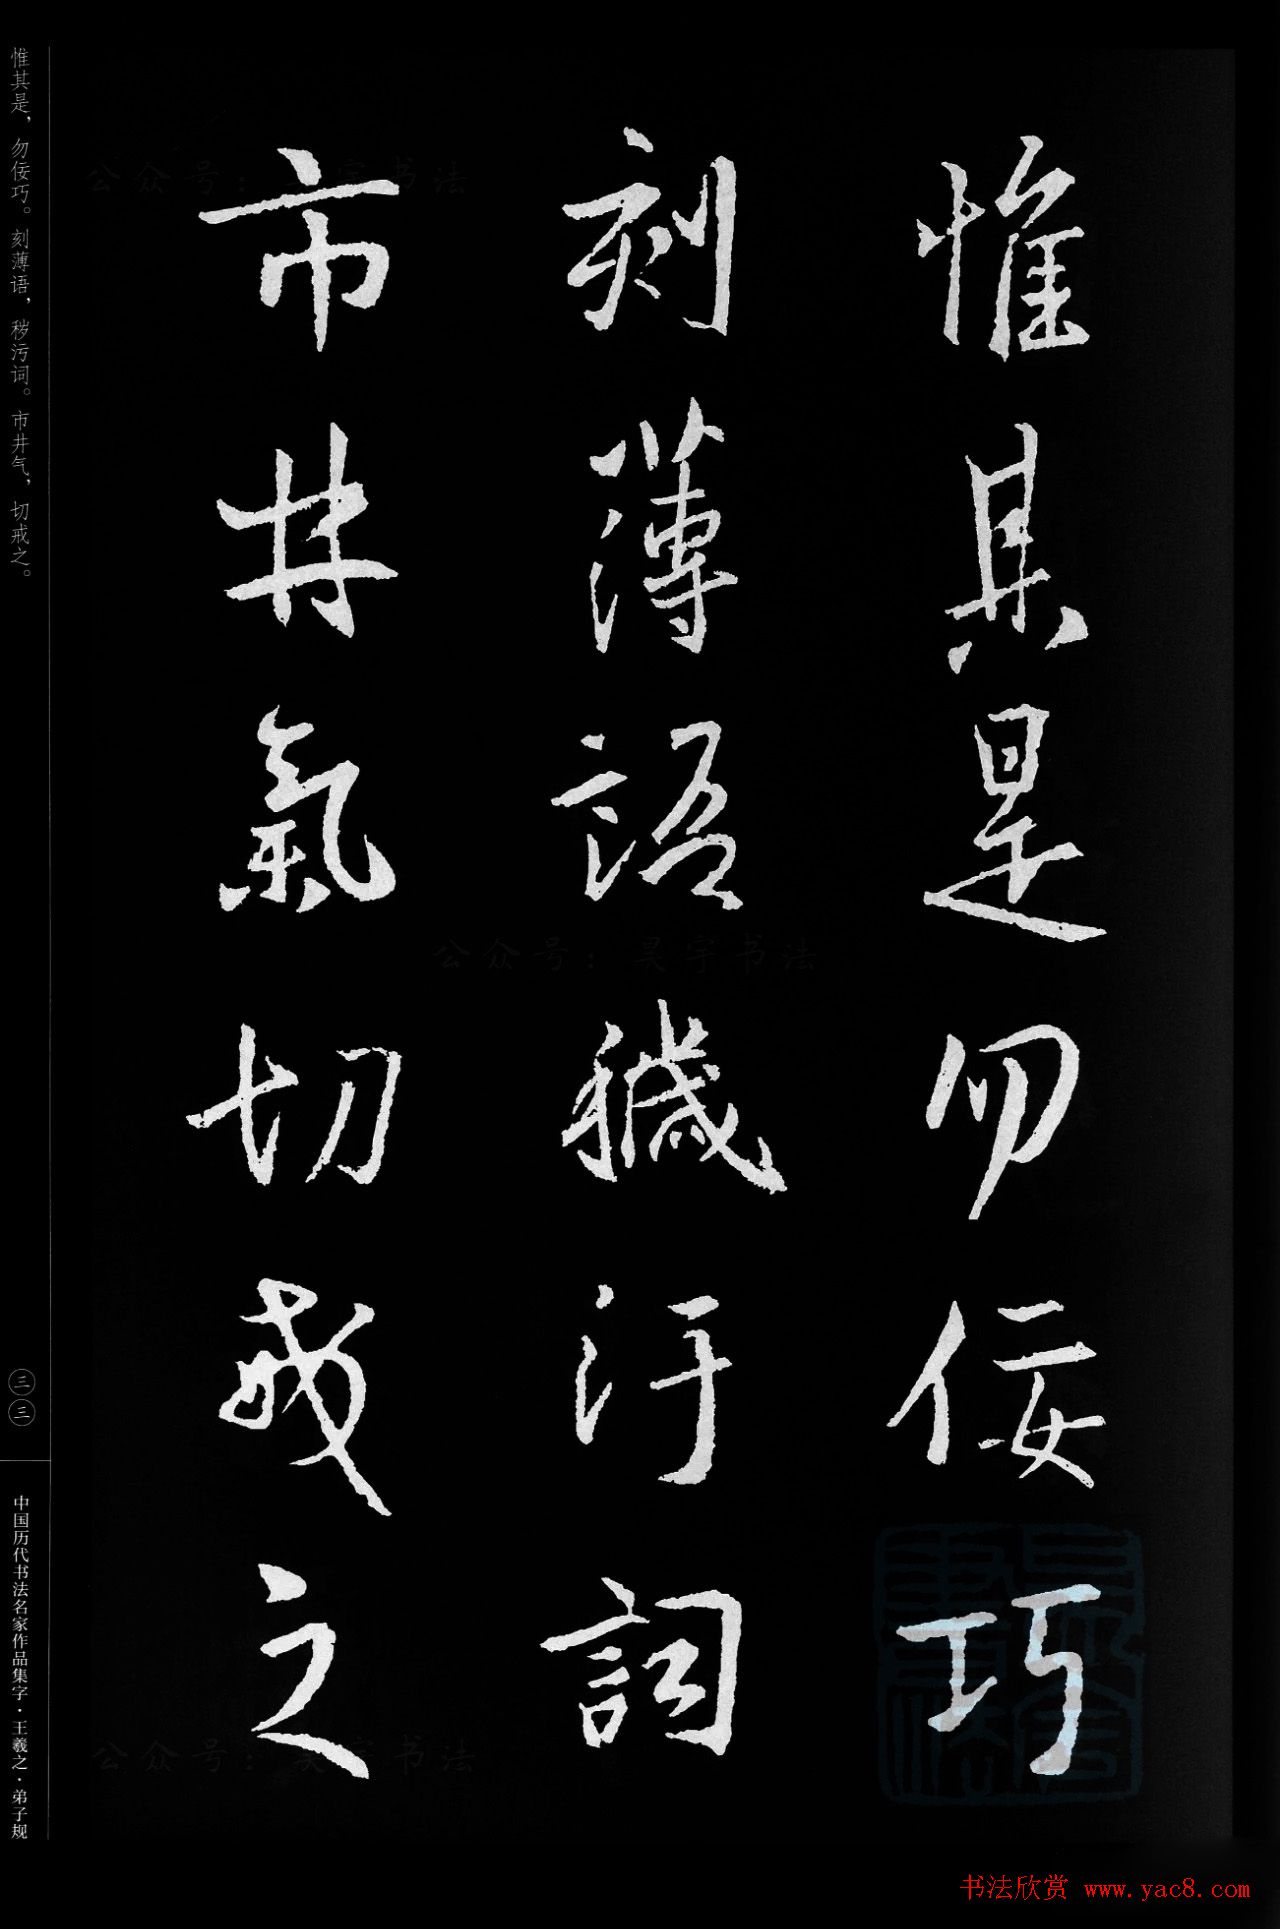 惟其是勿佞巧
刻薄語穢汙詞
市井氣切戒之
惟其是，勿佞巧。刻薄语，秽污词。市井气，切戒之。
三三
中国历代书法名家作品集字·王羲之·弟子规
公众号：昊宇书法
公众号：昊宇书法
公众号：昊宇书法
书法欣赏 www.yac8.com